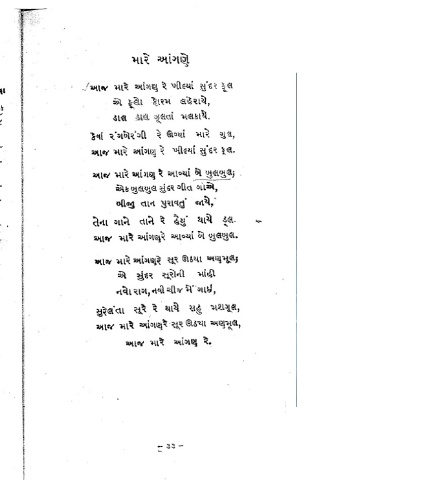 મારે આંગણે
આજ મારે આંગણુ રે ખીલ્યાં સુંદર ફૂલ
એ ફૂલો ફોરમ લહેરાયે,
ડાલ ડાલ ઝૂલતાં મલકાયે.
કેવાં રંગબેરંગી રે ઊગ્યાં મારે ગુલ,
આજ મારે આંગણુ રે ખીલ્યાં સુંદર ફૂલ.
આજ મારે આંગણુ રે આવ્યાં બે બુલબુલ;
એક બુલબુલ સુંદર ગીત ગાએ,
બીજી તાન પુરાવતું જાયે,
તેના ગાને તાને રે હૈયું થાયે ડૂલ.
આજ મારે આંગણુરે આવ્યાં બે બુલબુલ.
આજ મારે આંગણુરે સૂર ઊઠયા અણમૂલ;
એ સુંદર સૂરોની માંહી
નવો રાગ, નવી ચીજ મેં ગાઈ,
સુરેલતા સૂરે રે થાયે સહુ મશગૂલ,
આજ મારે આંગણુરે સૂર ઊઠયા અણમૂલ,
આજ મારે આંગણુ રે.